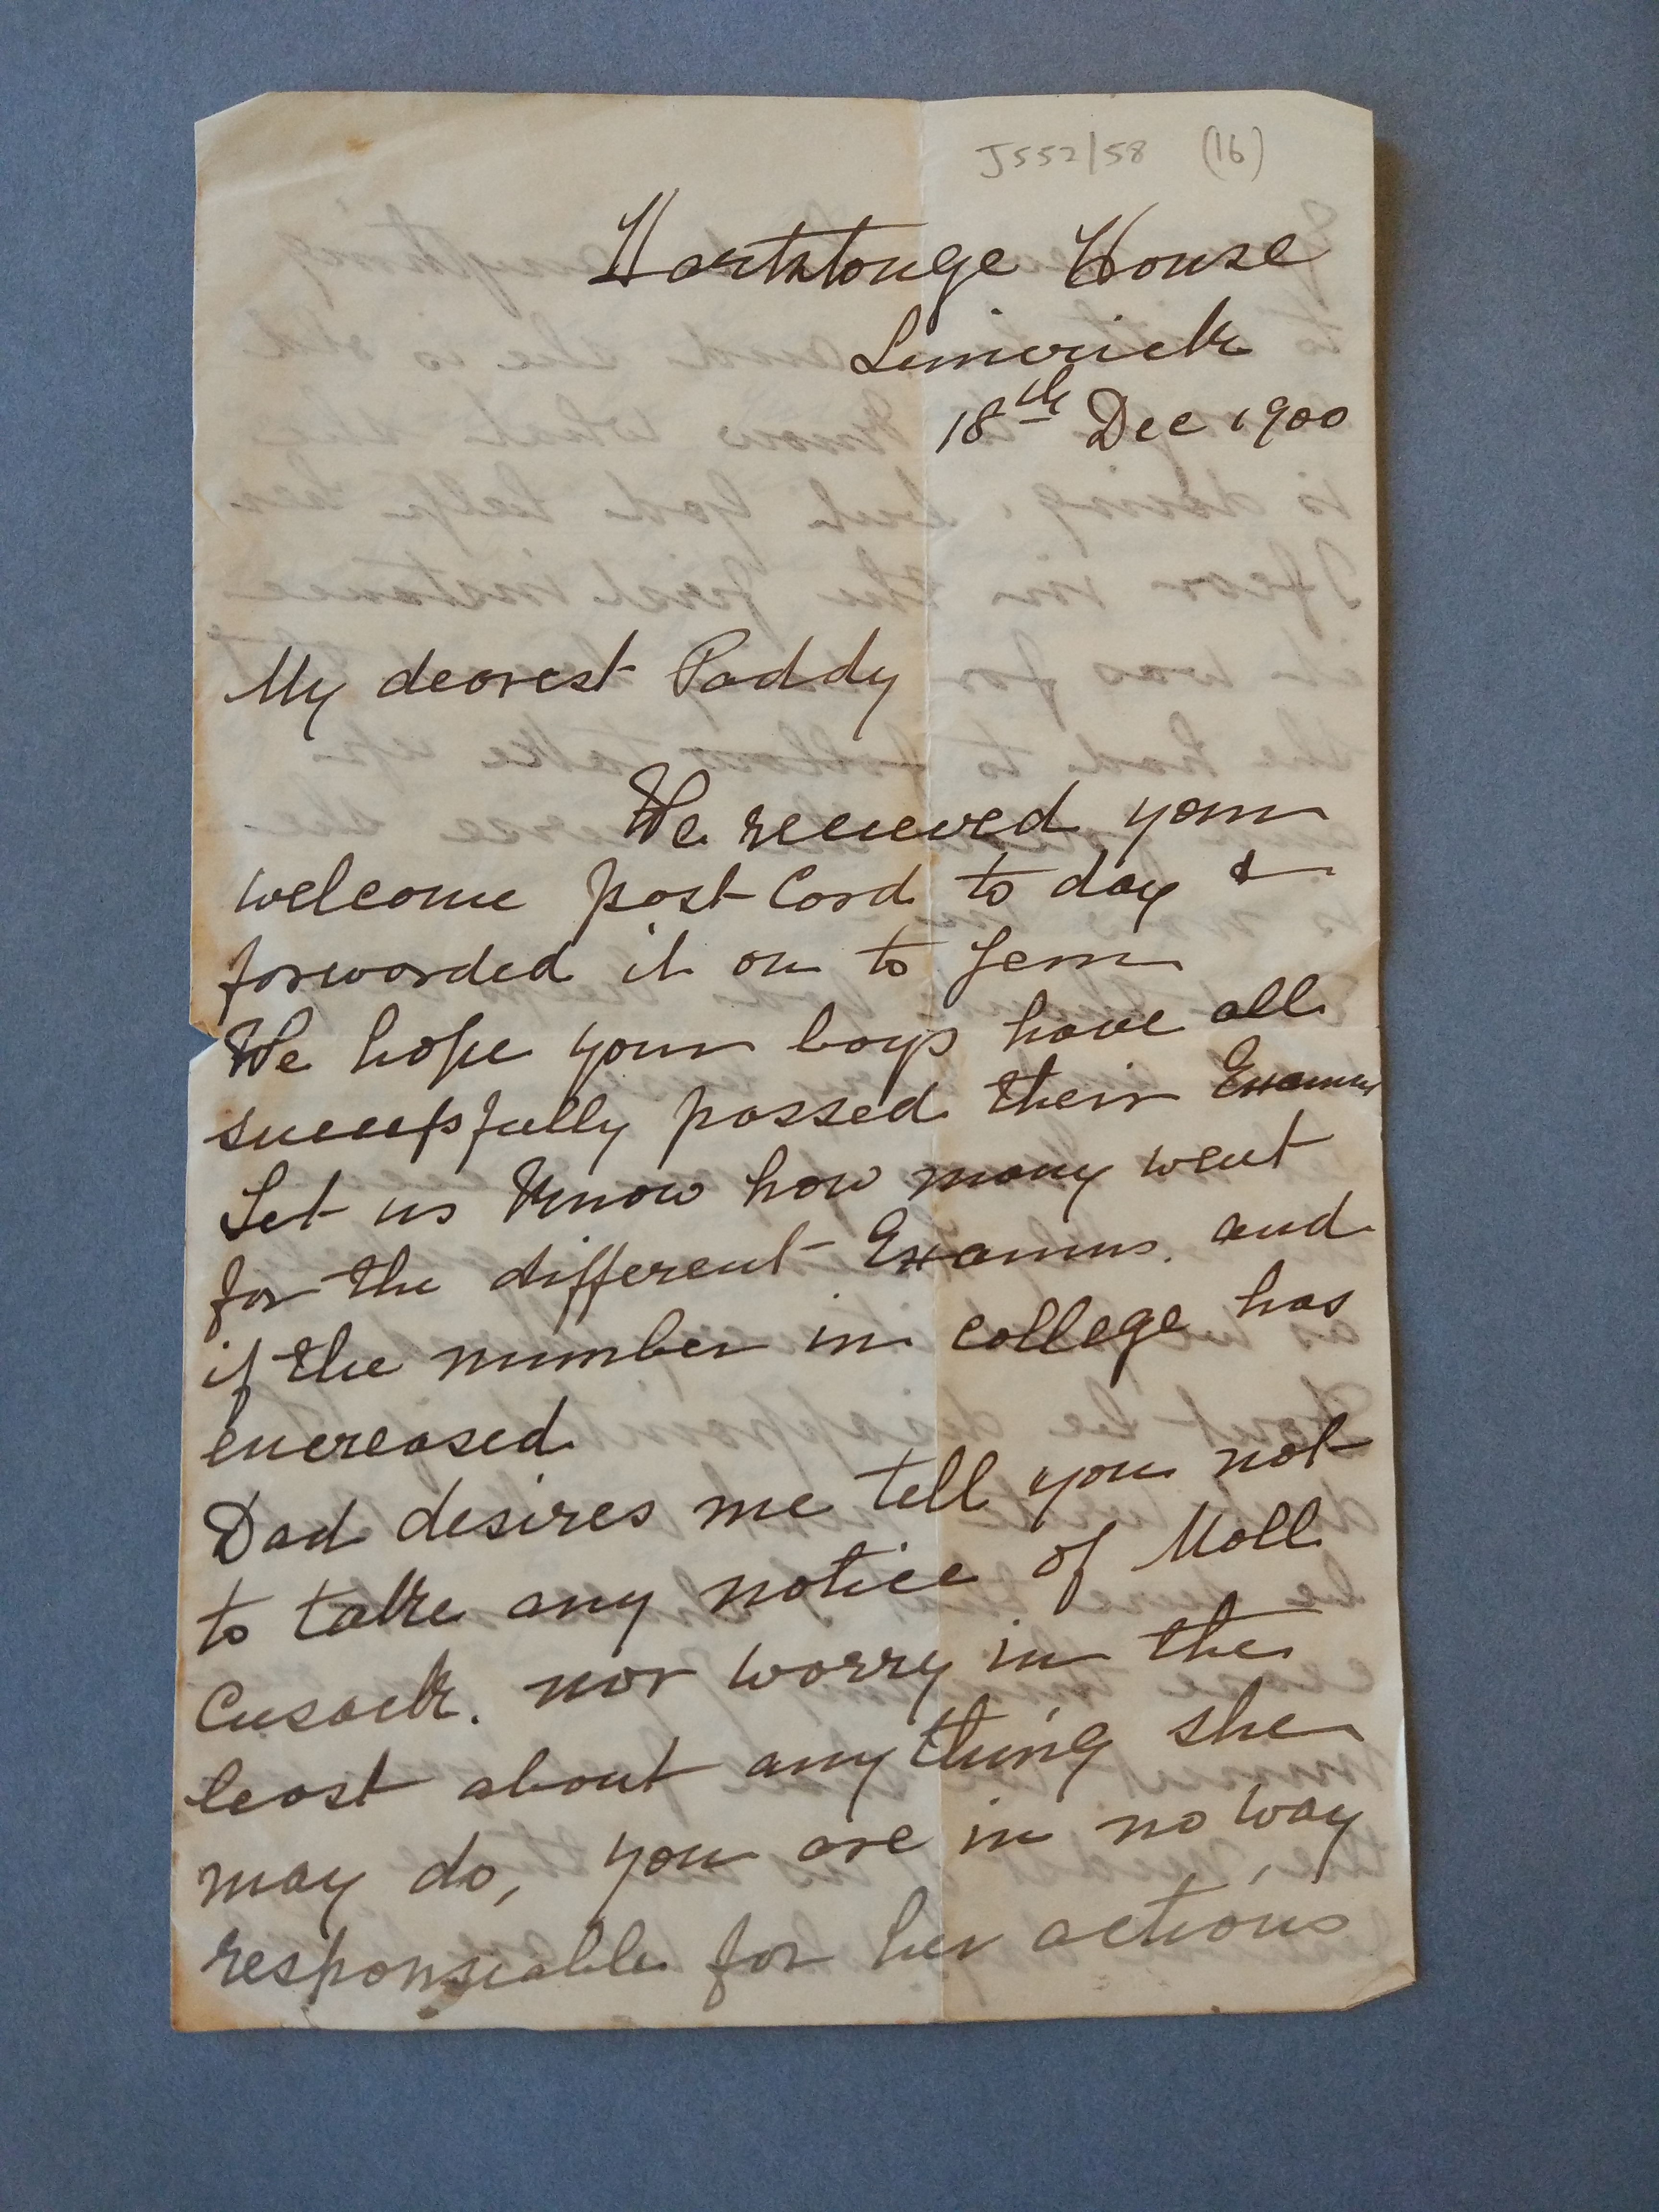 J552/58 (16)
Hartstonge House
Limerick
18th Dec 1900
My dearest Paddy
We received your
welcome post Card to day &
forwarded it on to Jem
We hope your boys have all
successfully passed their Examns
Let us know how many went
for the different Examns. and
if the number in college has
encreased
Dad desires me tell you not
to take any notice of Moll
Cusack. nor worry in the
least about anything she
may do, you are in no way
responsiable for her actions